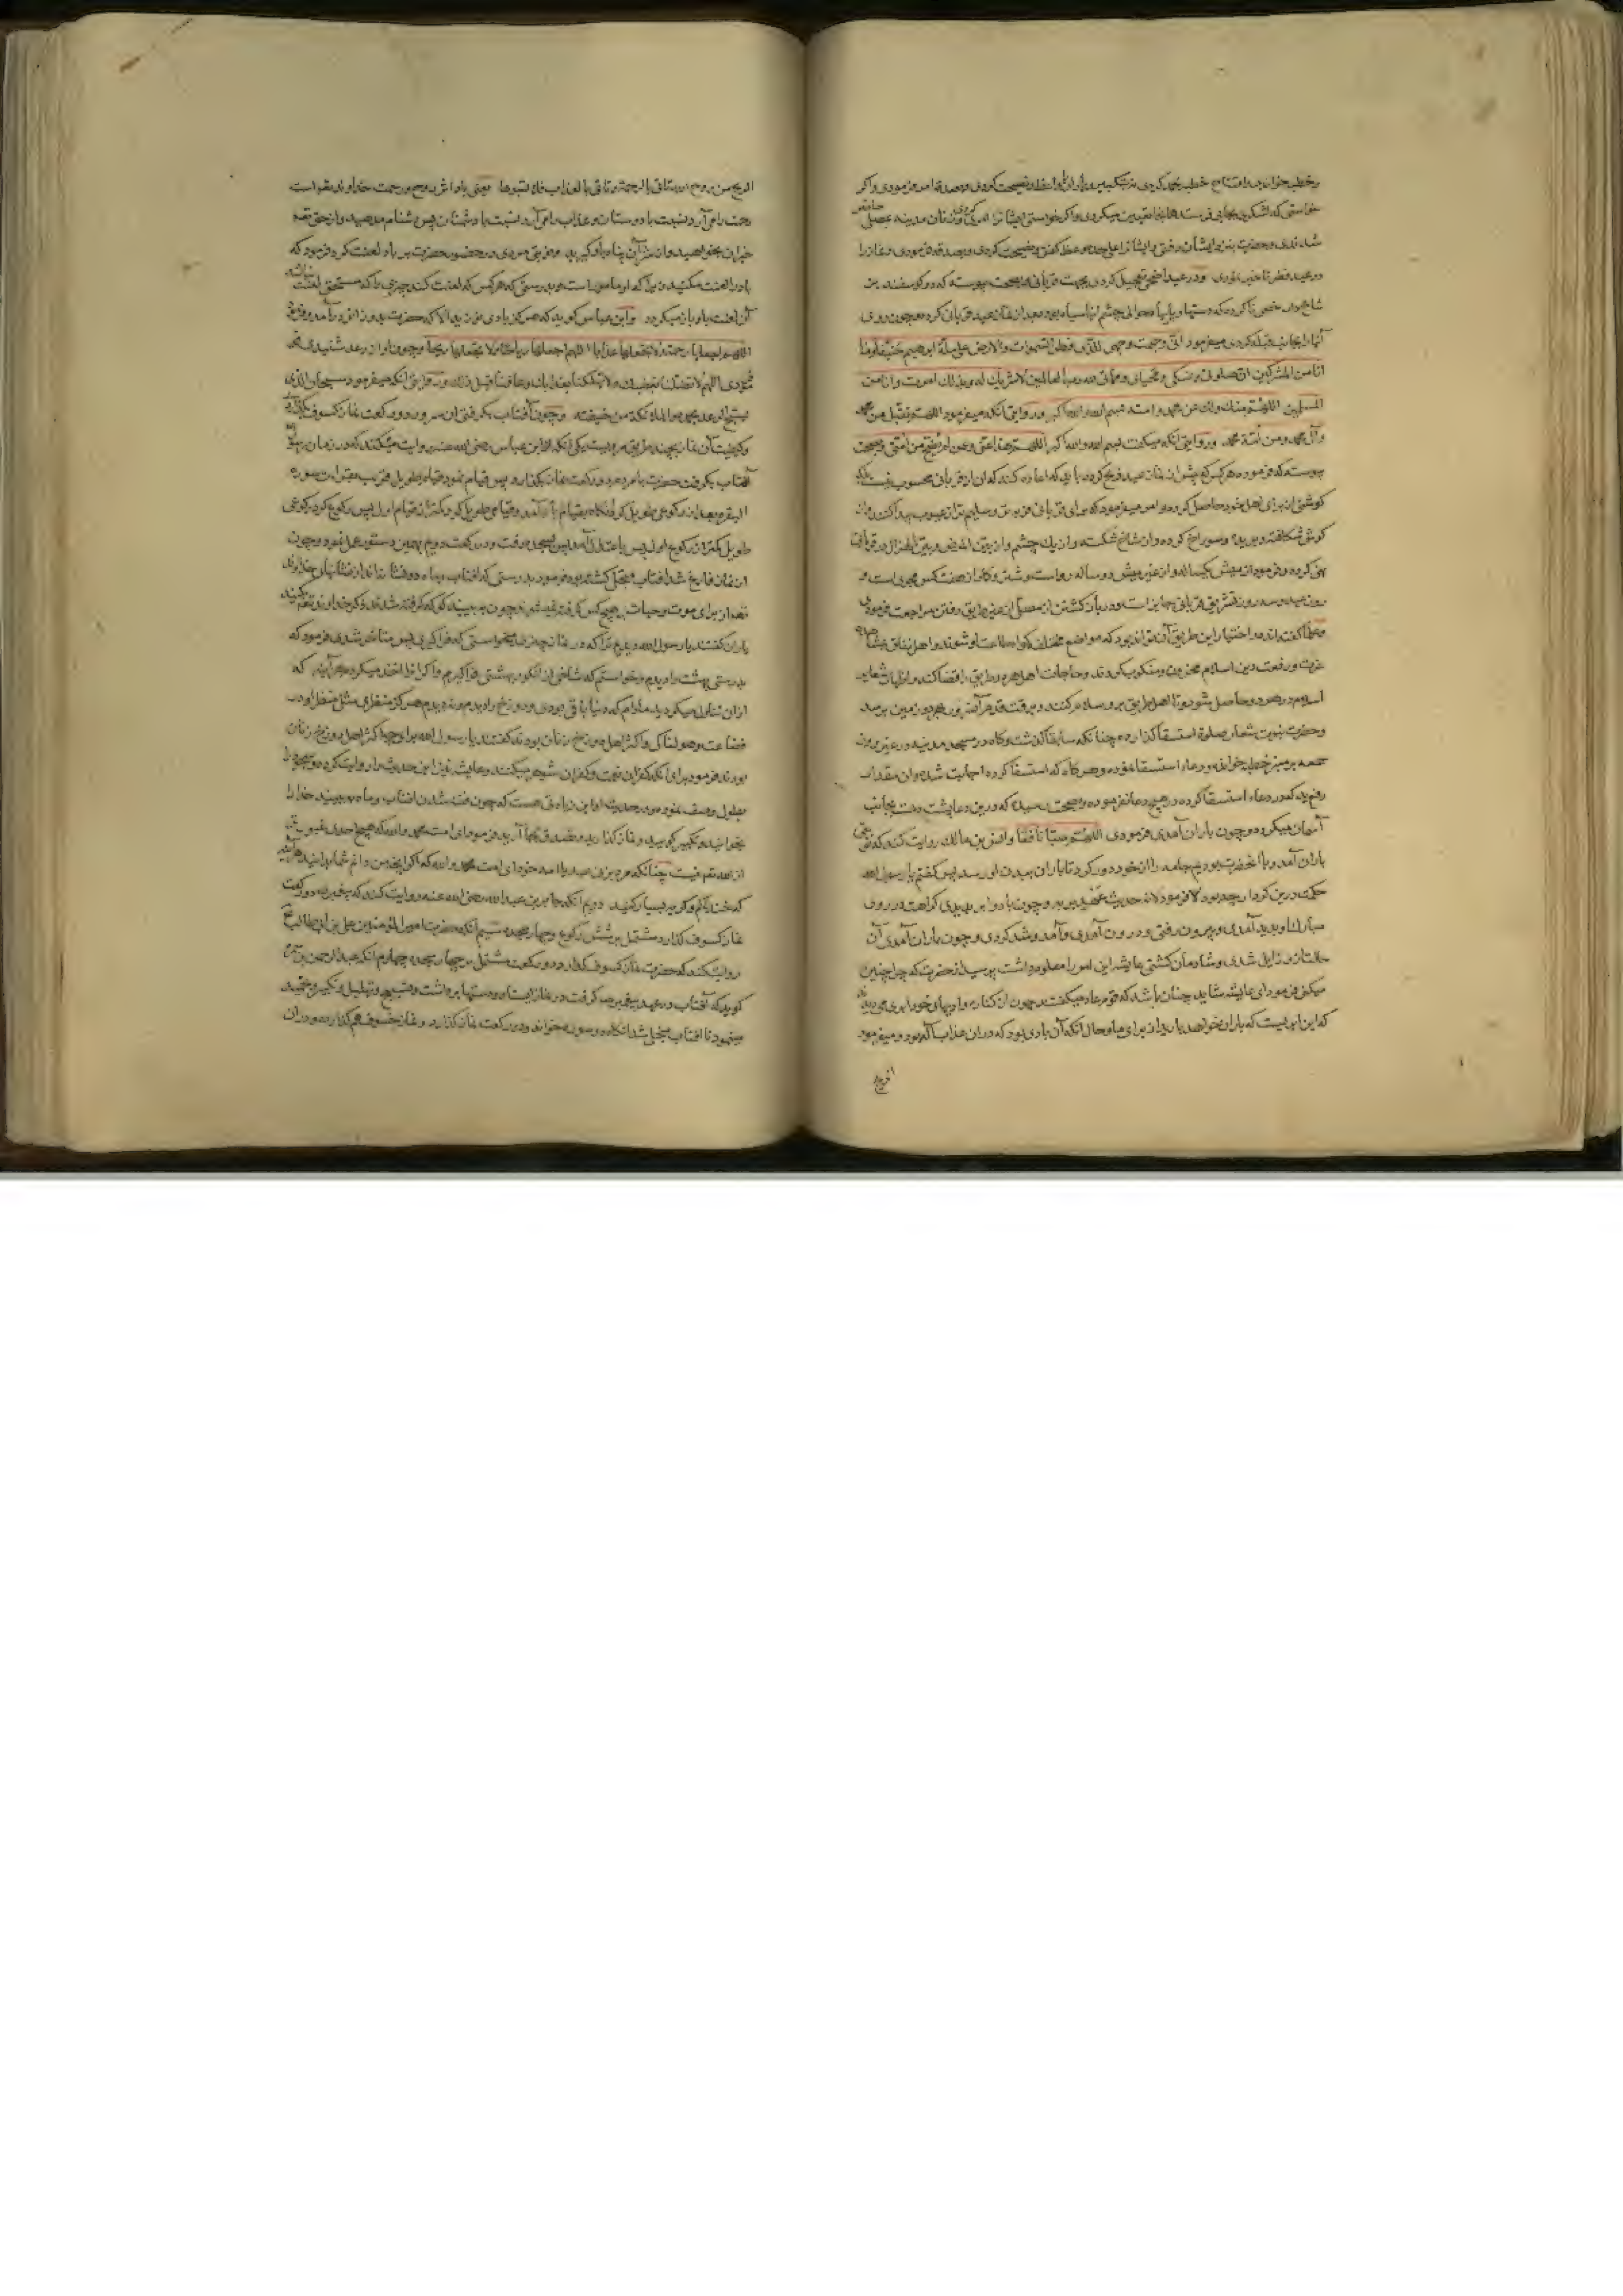 و خطبه خواندی و افتتاح خطبه بحمد کردی نه بتکبیر و یارانرا وعظ و نصیحت کردی و بصدقه امر فرمودی و اگر
خواستی که لشکری بجایی فرستد همانجا تعیین میکردی و اگر خواستی ایشانرا امر کردی و زنان مدینه بمصلی حاضر
شدندی و حضرت بنزد ایشان رفتی و ایشانرا علی حده وعظ گفتی و نصیحت کردی و بصدقه فرمودی و نماز را
در عید فطر تاخیر نمودی و در عید اضحی تعجیل کردی بجهت قربانی و بصحت پیوسته که دو گوسفند نر
شاخ دار خصی ناکرده که دستها و پایها و حوالی چشم آنها سیاه بود بعد از نماز عید قربانی کرده و چون روی
آنها را بجانب قبله کردی میفرمود انی وجهت وجهی للذی فطر السموات والارض علی ملة ابرهیم حنیفا وما
انا من المشرکین ان صلوتی ونسکی ومحیای ومماتی لله رب العالمین لا شریک له وبذلک امرت وانا من
المسلمین اللهم منک ولک عن محمد وامته بسم الله والله اکبر و روایتی آنکه میفرمود اللهم تقبل من محمد
وآل محمد ومن امة محمد و روایتی آنکه میگفت بسم الله والله اکبر اللهم هذا عنی وعمن لم یضح من امتی و بصحت
پیوسته که فرموده هر کس که پیش از نماز عید ذبح کرده باید که اعاده کند که آن از قربانی محسوب نیست بلکه
گوشتی از برای اهل خود حاصل کرده و امر میفرمود که برای قربانی فربه تر و سلیم تر از عیوب پیدا کنند و از
گوش شکافته و بریده و سوراخ کرده و از شاخ شکسته و از یک چشم و از بین المرض و بین الهزال در قربانی
نهی کرده و فرمود از میش یکساله و از غیر میش دو ساله رواست و شتر و گاو از هفت کس مجزی است و
روز عید و سه روز تشریق قربانی جایز است و در باز گشتن از مصلی از غیر طریق رفتن مراجعت فرمودی
و علما گفته اند در اختیار این طریق آن تواند بود که مواضع مختلفه گواه طاعت او شوند و اهل نفاق بمشاهده
عزت و رفعت دین اسلام محزون و منکوب گردند و حاجات اهل هر دو طریق را قضا کند و اظهار شعایر
اسلام در هر دو حاصل شود و تا اهل طریق بر و سلام کنند و برکت قدم آن سرور بهر دو زمین برسد
و حضرت نبویت شعار صلوة استسقا گذارده چنانکه سابقا گذشت و گاه در مسجد مدینه در غیر روز
جمعه بر منبر خطبه خوانده و دعاء استسقا نموده و هر گاه که استسقا کرده اجابت شده و آن مقدار
رفع ید که در دعاء استسقا کرده در هیچ دعا نفرموده و بصحت رسیده که درین دعا پشت دست بجانب
آسمان میکرده و چون باران آمدی فرمودی اللهم صیبا نافعا و انس بن مالک روایت کند که وقتی
باران آمد و با آنحضرت بودیم جامه را از خود دور کرد تا باران ببدن او رسد پس گفتم یا رسول الله
حکمت درین کردار چه بود فرمود لانه حدیث عهد بربه و چون باد و ابر بدیدی کراهت در روی
مبارک او پدید آمدی و بیرون رفتی و درون آمدی و آمد و شد کردی و چون باران آمدی آن
حالت از و زایل شدی و شادمان گشتی عایشه این امر را معلوم داشت پرسید از حضرت که چرا چنین
میکنی فرمود ای عایشه شاید چنان باشد که قوم عاد میگفتند چون از کناره وادیهای خود ابری می دیدند
که این ابریست که باران خواهد بارید از برای ما و حال آنکه آن بادی بود که دران عذاب الیم بود و میفرمود
الریح من روح الله تاتی بالرحمة وتاتی بالعذاب فلا تسبوها یعنی باد از روح و رحمت خداوند تعالی است
رحمت را می آرد نسبت با دوستان و عذاب را می آرد نسبت با دشمنان پس دشنام مدهید و از حق تعالی
خیر آن بخواهید و از شر آن پناه باو گیرید و فرمتی مردی در حضور حضرت بر باد لعنت کرد فرمود که
باد را لعنت مکنید زیرا که او مامور است و بدرستی که هر کس که لعنت کند چیزی را که مستحق لعنت نباشد
آن لعنت باو باز میگردد و ابن عباس گوید که هرگز بادی نوزید الا که حضرت بدو زانو درآمد و فرمود
اللهم اجعلها رحمة ولا تجعلها عذابا اللهم اجعلها ریاحا ولا تجعلها ریحا و چون آواز رعد شنیدی
فرمودی اللهم لا تقتلنا بغضبک ولا تهلکنا بعذابک وعافنا قبل ذلک و روایتی آنکه میفرمود سبحان الذی
یسبح الرعد بحمده والملائکة من خیفته و چون آفتاب بگرفتی آن سرور دو رکعت نماز کسوف بگذاردی
و کیفیت آن نماز بچند طریق مرویست یکی آنکه از ابن عباس رضی الله عنهما روایت میکنند که در زمان پیغمبر
آفتاب بگرفت حضرت با مردم دو رکعت نماز بگذارد پس قیام نمود قیام طویل قریب بقراءت سوره
البقره بعد ازان رکوعی طویل کرد آنگاه بقیام باز آمد و قیامی طویل کرد و کمتر از قیام اول پس رکوع کرد رکوعی
طویل کمتر از رکوع اول پس با اعتدال آمد و این بسجده رفت و در رکعت دوم بهمین دستور عمل نمود و چون
از نماز فارغ شد آفتاب منجلی گشته بود فرمود بدرستی که آفتاب و ماه دو نشانه اند از نشانهای خداوند
تعالی از برای موت و حیات هیچ کس گرفته نمیشوند چون ببینید که گرفته شدند ذکر خداوند تعالی بکنید
یاران گفتند یا رسول الله دیدیم ترا که در نماز چیزی میخواستی که فراگیری پس متاخر شدی فرمود که
بدرستی بهشت را دیدم و خواستم که شاخی از انگور بهشتی فراگیرم و اگر آنرا اخذ میکردم هر آینه که
ازان تناول میکردید مادام که دنیا باقی بودی و دوزخ را دیدم و ندیدم هرگز منظری مثل منظر او در
فضاعت و هولناکی و اکثر اهل دوزخ زنان بودند گفتند یا رسول الله برای چه اکثر اهل دوزخ زنان
بودند فرمود برای آنکه کفران نعمت و کفران شوهر میکنند و عایشه نیز این حدیث را روایت کرده و سجود را
بطول وصف نمود و در حدیث او این زیادتی هست که چون خسف شدن آفتاب و ماه ببینید خدا را
بخوانید و تکبیر گویید و نماز گذارید و تصدق بجا آرید فرمود ای امت محمد والله که هیچ احدی غیورتر
از الله تعالی نیست چنانکه مردی زن عبد یا امه خود ای امت محمد والله که اگر آنچه من دانم شما بدانید هر آینه
که خنده کم و گریه بسیار کنید دویم آنکه جابر بن عبدالله رضی الله عنه روایت کند که پیغمبر دو رکعت
نماز کسوف گذارد مشتمل بر شش رکوع و چهار سجده سیم آنکه حضرت امیر المؤمنین علی بن ابی طالب
روایت کند که حضرت نماز کسوف گذارد دو رکعت مشتمل بر چهار سجده چهارم آنکه عبدالرحمن بن سمره
گوید که آفتاب در عهد پیغمبر صلعم گرفت در نماز ایستاد و دستها برداشت و تسبیح و تهلیل و تکبیر و تحمید
مینمود تا آفتاب منجلی شد آنگاه دو سوره خواند و دو رکعت نماز گذارد و نماز خسوف هم گذارده و دران